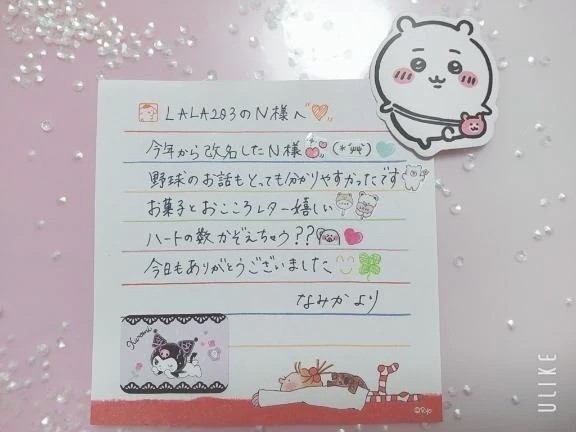 LALA203のN様へ
今年から改名したN様(*´ψψ`)
野球のお話もとっても分かりやすかったです
お菓子とおこころレター嬉しい
ハートの数かぞえちゃう??
今日もありがとうございました
なみかより
Kuromi
©Ryo
ULIKE